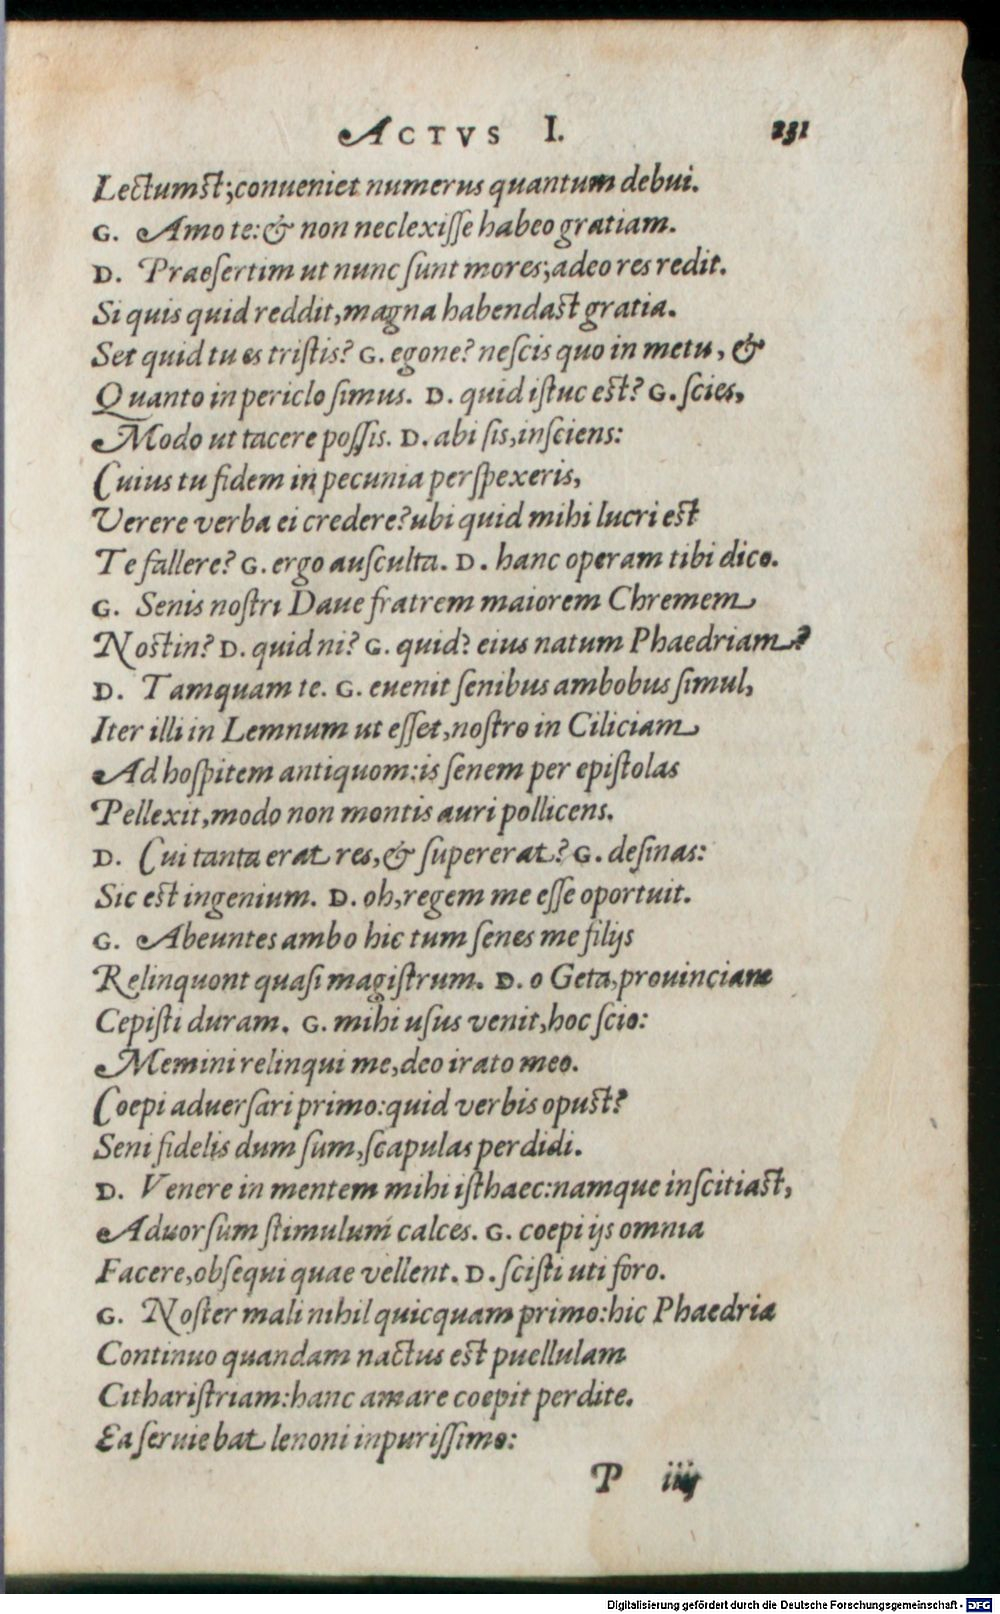 ACTVS I. 231
Lectumst; conueniet numerus quantum debui.
G. Amo te: & non neclexisse habeo gratiam.
D. Praesertim ut nunc sunt mores; adeo res redit.
Si quis quid reddit, magna habendast gratia.
Set quid tu es tristis? G. egone? nescis quo in metu, &
Quanto in periclo simus. D. quid istuc est? G. scies,
Modo ut tacere possis. D. abi sis, insciens:
Cuius tu fidem in pecunia perspexeris,
Verere verba ei credere? ubi quid mihi lucri est
Te fallere? G. ergo ausculta. D. hanc operam tibi dico.
G. Senis nostri Daue fratrem maiorem Chremem
Nostin? D. quid ni? G. quid? eius natum Phaedriam?
D. Tamquam te. G. euenit senibus ambobus simul,
Iter illi in Lemnum ut esset, nostro in Ciliciam
Ad hospitem antiquom: is senem per epistolas
Pellexit, modo non montis auri pollicens.
D. Cui tanta erat res, & supererat? G. desinas:
Sic est ingenium. D. oh, regem me esse oportuit.
G. Abeuntes ambo hic tum senes me filijs
Relinquont quasi magistrum. D. o Geta, prouinciam
Cepisti duram. G. mihi usus venit, hoc scio:
Memini relinqui me, deo irato meo.
Coepi aduersari primo: quid verbis opust?
Seni fidelis dum sum, scapulas perdidi.
D. Venere in mentem mihi isthaec: namque inscitiast,
Aduorsum stimulum calces. G. coepi ijs omnia
Facere, obsequi quae vellent. D. scisti uti foro.
G. Noster mali nihil quicquam primo: hic Phaedria
Continuo quandam nactus est puellulam
Citharistriam: hanc amare coepit perdite.
Ea seruiebat lenoni inpurissimo:
P iiij
Digitalisierung gefördert durch die Deutsche Forschungsgemeinschaft - DFG